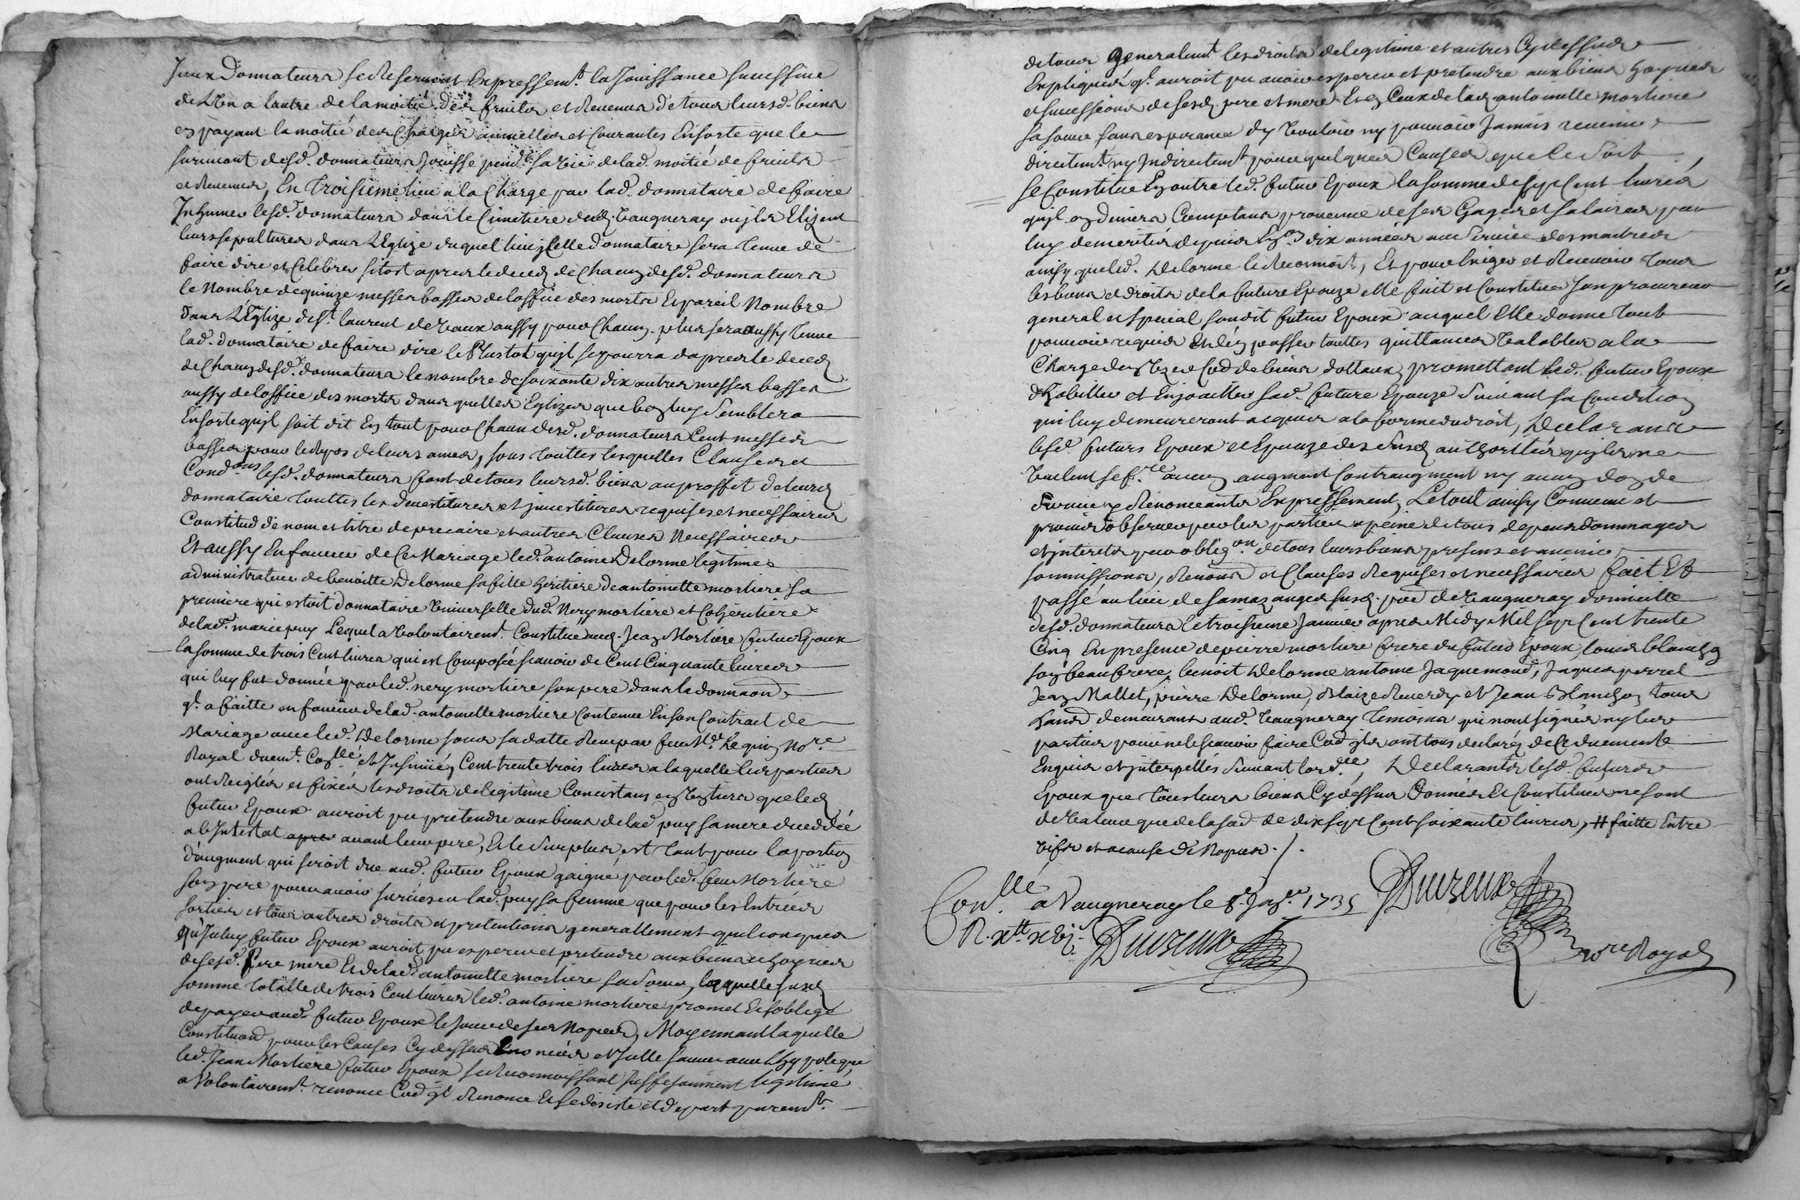 Iceux Donnateurs se Reservent Expressem.t la Jouissance successive
de L'Un a Lautre de la moitié des fruits et Revenus de tous leursd. biens
en payant la moitié des Charges annuelles et Courantes Ensorte que le
survivant desd. donnateurs Jouisse pend.t sa vie de lad. moitié de fruits
et Revenus, En Troisieme lieu a la Charge par lad. donnataire de faire
Inhumer lesd. donnateurs dans le Cimetiere dud. Vaugneray ou ils Elizent
leurs sepultures dans L'Eglize duquel lieu jcelle donnataire sera Tenue de
faire dire et Celebrer sitost apres le deced de Chacun desd. donnateurs
le Nombre de quinze messes basses de loffice des morts Et pareil Nombre
dans L'Eglize de St. laurent de Vaux aussy pour Chacun. plus sera aussy Tenue
lad. donnataire de faire dire le Plustot qu'jl se pourra dapres le deced
de Chacun desd. donnateurs le nombre de soixante dix autres messes basses
aussy de loffice des morts dans quelles Eglizes que bon luy semblera
Ensorte qu'jl soit dit En tout pour Chacun desd. donnateurs Cent messes
basses pour le Repos de leurs ames, sous touttes lesquelles Clauses et
Cond.ons lesd. donnateurs font de tous leursd. biens au proffit de leurd.
donnataire touttes les devestitures et jnvestitures requises et necessaires
Constitud de nom et titre de precaire et autres Clauses Necessaires
Et aussy En faveur de Ce Mariage led. antoine Delorme legitime
administrateur de benoitte Delorme sa fille heritiere de antoinette mortiere sa
premiere qui estoit donnataire Universelle dud. Nery mortiere et Coheritiere
de lad. marie puy Lequel a Volontairem.t Constitué aud. Jean Mortiere futur Epoux
la somme de trois Cent livres qui est Composée scavoir de Cent Cinquante livres
qui luy fut donnée par led. nery mortiere son pere dans le donnaon
q.l a faitte en faveur de lad. antoinette mortiere Contenue En son Contrat de
Mariage avec led. Delorme sous sa datte Receu par feu M.e Le quin No.re
Royal duem.t Con.llé et Insinué, Cent trente trois livres a laquelle les parties
ont Reglés et fixés les droits de legitime Concistans en Vestura que led.
futur Epoux auroit pu pretendre aux biens de lad. puy sa mere decedée
ab Intestat avant leur pere, Et le surplus est tant pour la portion
d'augment qui seroit due aud. futur Epoux gaigné par led. feu Mortiere
son pere pour avoir survecu a lad. puy sa femme que pour les Entrées
sorties et tous autres droits et pretentions generallement quelconques
qu'Jceluy futur Epoux auroit pu esperer et pretendre aux biens et hoyries
de sesd. Pere mere Et de lad. antoinette mortiere sa soeur, laquelle susd.
somme totalle de trois Cent livres led. antoine mortiere promet Et s'oblige
de payer aud. futur Epoux le Jour de ses Nopces, Moyennant laquelle
Constituon pour les Causes Cy dessus Enoncées et Jcelle sauve aux Hypoteques
led. Jean Mortiere futur Epoux se Reconnoissant suffisament legitimé
a Volontairem.t renoncé Co.e jl Renonce Et se desiste et depart purem.t
de tous generalem.t les droits de legitime et autres Cy dessus
Expliqués q.l auroit pu avoir esperer et pretendre aux biens hoyries
et successions de sesd. pere et mere Et en Ceux de lad. antoinette mortiere
sa soeur sans esperance d'y Vouloir ny pouvoir Jamais revenir
directem.t ny Indirectem.t pour quelques Causes que ce soit
se Constitue En outre led. futur Epoux la somme de sept Cent livres
qu'jl a en deniers Comptans provenue de ses Gages et salaires par
luy demerités depuis Env.on dix années au service des maitres
ainsy que led. Delorme le Reconnoit, Et pour Exiger et Recevoir tous
les biens et droits de la future Epouze Elle fait et Constitue son procureur
general et special sondit futur Epoux auquel Elle donne tout
pouvoir requis Et d'en passer touttes quittances Valables a la
Charge d'en Uzer Co.e de biens dottaux, promettant led. futur Epoux
d'habiller et Enjoailler sad. future Epouze suivant sa Condition
qui luy demeureront acquis a la forme du droit, Declarant
lesd. futurs Epoux et Epouze des susd. authorités qu'jls ne
Veulent se f.re aucun augment Contraugment ny aucun don de
survie y Renonceants Expressement, Le tout ainsy Convenu et
promis observer par les parties a peine de tous depens dommages
et interets par oblig.on de tous leurs biens presens et avenir
soumissions, Renon.s et Clauses Requises et necessaires fait Et
passé au lieu de samazange susd. par. de Vaugneray domicille
desd. donnateurs le troisieme Janvier apres Midy Mil sept Cent trente
Cinq En presence de pierre mortiere frere du futur Epoux, louis blanchon
son beaufrere, benoit Delorme antoine Jaquemond, Jaques perret
Jean Mallet, pierre Delorme, Blaize Reverdy et Jean Blanchon tous
hab.ts demeurans aud. Vaugneray Temoins qui n'ont signés ny les
parties pour ne le scavoir faire Co.e jls ont tous declarés de Ce duement
Enquis et interpellés suivant lord.ce, Declarants lesd. futurs
Epoux que tous leurs biens Cy dessus Donnés Et Constitués ne sont
de Valeur que de la so.e de dix sept Cent soixante livres, # faitte Entre
vifs et a cause de Nopces ./.
Con.llé a Vaugneray le 8.e Ja.er 1735
R. x.tt
No.re Royal